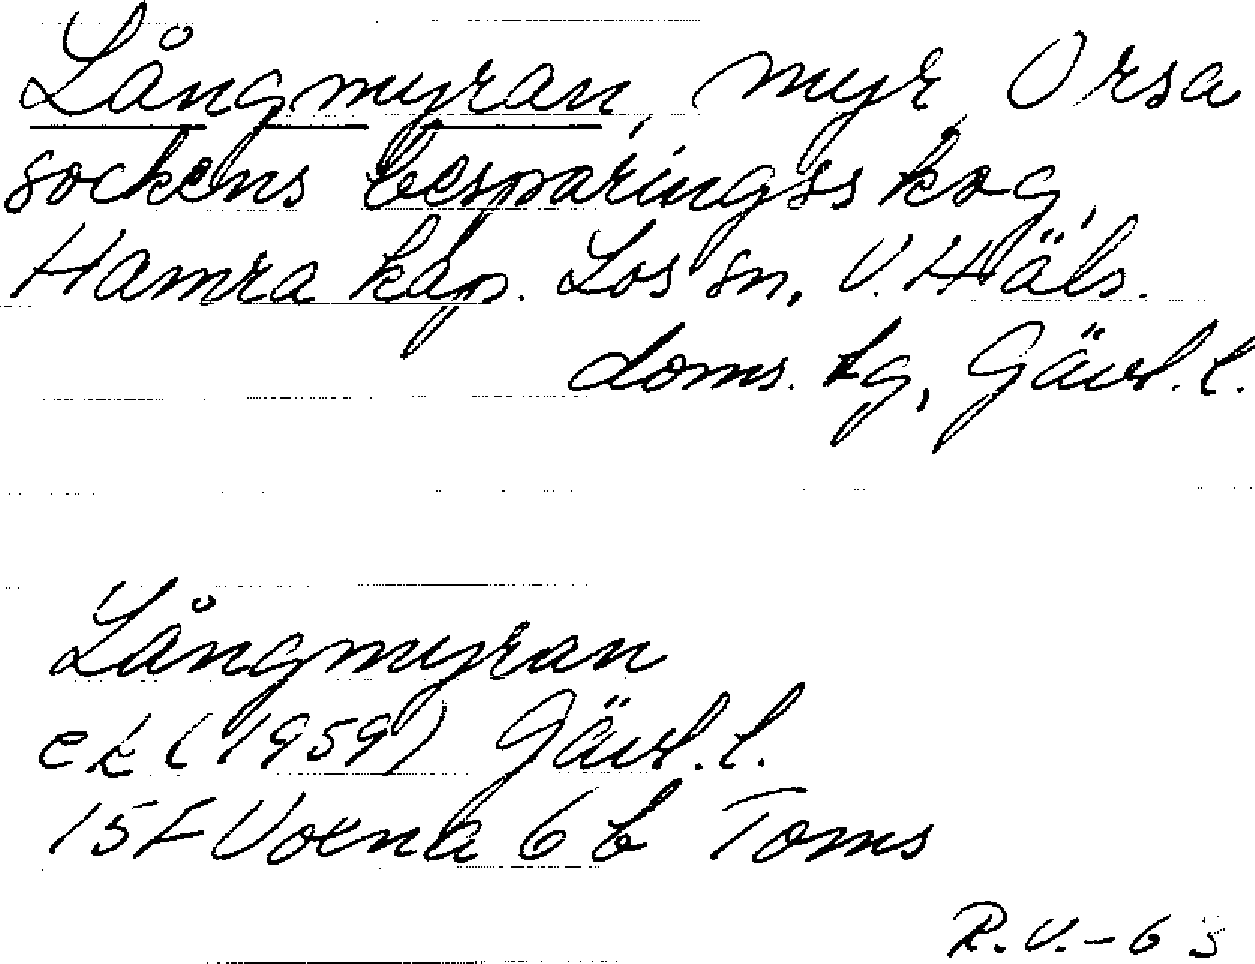 Långmyran, myr, Orsa
sockens besparingsskog,
Hamra kap. Los sn, V. Häls.
doms. tg, Gävl. l.
Långmyran
ek (1959) Gävl. l.
15F Voxna 6 b Toms
R.V.-63